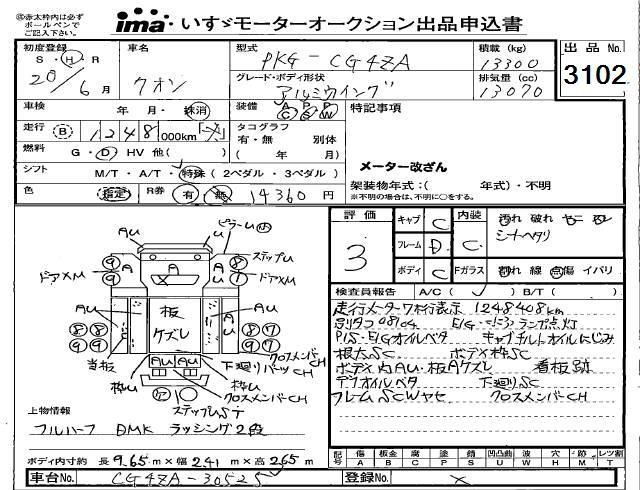 ※赤太枠内は必ず
ボールペンで
ご記入下さい。
ima いすゞモーターオークション出品申込書
初度登録
S・H・R
20年6月
車名
クオン
型式
PKG-CG4ZA
積載(kg)
13300
出品No.
3102
グレード・ボディ形状
アルミウイング
排気量(cc)
13070
車検 年 月・抹消
装備 A/C P/S P/W
特記事項
走行 (B) 1248 000km
タコグラフ
有・無 別体
( 年 月)
燃料 G・D・HV 他( )
メーター改ざん
シフト M/T・A/T・特殊(2ペダル・3ペダル)
架装物年式:( 年式)・不明
※不明の場合は、不明に○をする。
色 指定 R券 有 無 14360円
評価
3
キャブ C
フレーム D
ボディ C
内装 C
汚れ 破れ
シートヘタリ
Fガラス 割れ 線 点傷 イバリ
検査員報告 A/C( ) B/T( )
走行メーター7桁表示 1248408km
P/S・E/Gオイルベタ キャブチルトオイルにじみ
根太SC ボデー枠SC
ボデー内AU・板Aケズレ 看板跡
デフオイルベタ 下廻りSC
フレームSCWヤセ クロスメンバーCH
ピラーAU
ステップU
ドアXM
ドアXM
AU
板
ケズレ
当板
枠U
枠U
下廻りパーツCH
クロスメンバーCH
クロスメンバーCH
ステップUST
上物情報
フルハーフ DMK ラッシング2段
ボディ内寸約 長9.65m×幅2.41m×高2.65m
記号 傷A 板金B 腐C 塗P 錆S 凹凸曲U 波W 穴H 跡M レンズ割T
車台No. CG4ZA-30525
登録No. ×